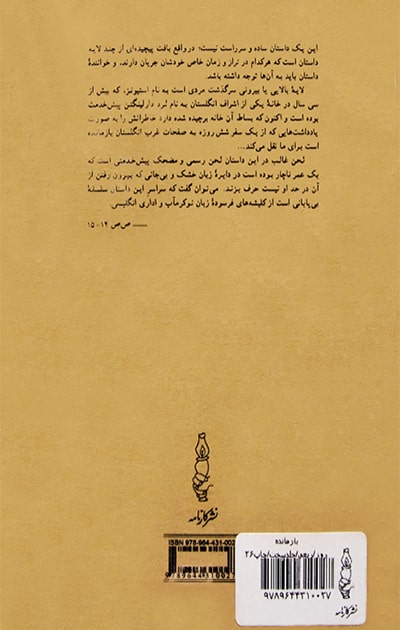 این یک داستان ساده و سرراست نیست؛ در واقع بافت پیچیده‌ای از چند لایه
داستان است که هرکدام در تراز و زمان خاص خودشان جریان دارند، و خوانندهٔ
داستان باید به آن‌ها توجه داشته باشد.
لایهٔ بالایی یا بیرونی سرگذشت مردی است به نام استیونز، که بیش از
سی سال در خانهٔ یکی از اشراف انگلستان به نام لرد دارلینگتن پیش‌خدمت
بوده است و اکنون که بساط آن خانه برچیده شده دارد خاطراتش را به صورت
یادداشت‌هایی که از یک سفر شش روزه به صفحات غرب انگلستان بازمانده
است برای ما نقل می‌کند...
لحن غالب در این داستان لحن رسمی و مضحک پیش‌خدمتی است که
یک عمر ناچار بوده است در دایرهٔ زبان خشک و بی‌جانی که بیرون رفتن از
آن در حد او نیست حرف بزند. می‌توان گفت که سراسر این داستان سلسلهٔ
بی‌پایانی است از کلیشه‌های فرسودهٔ زبان نوکرمآب و اداری انگلیسی.
— صص ۱۴-۱۵
نشر کارنامه
ISBN 978-964-431-002
9789644310027
بازمانده
روز/ربعی/جلدسخت/چاپ۲۶
۹۷۸۹۶۴۴۳۱۰۰۲۷
نشر کارنامه